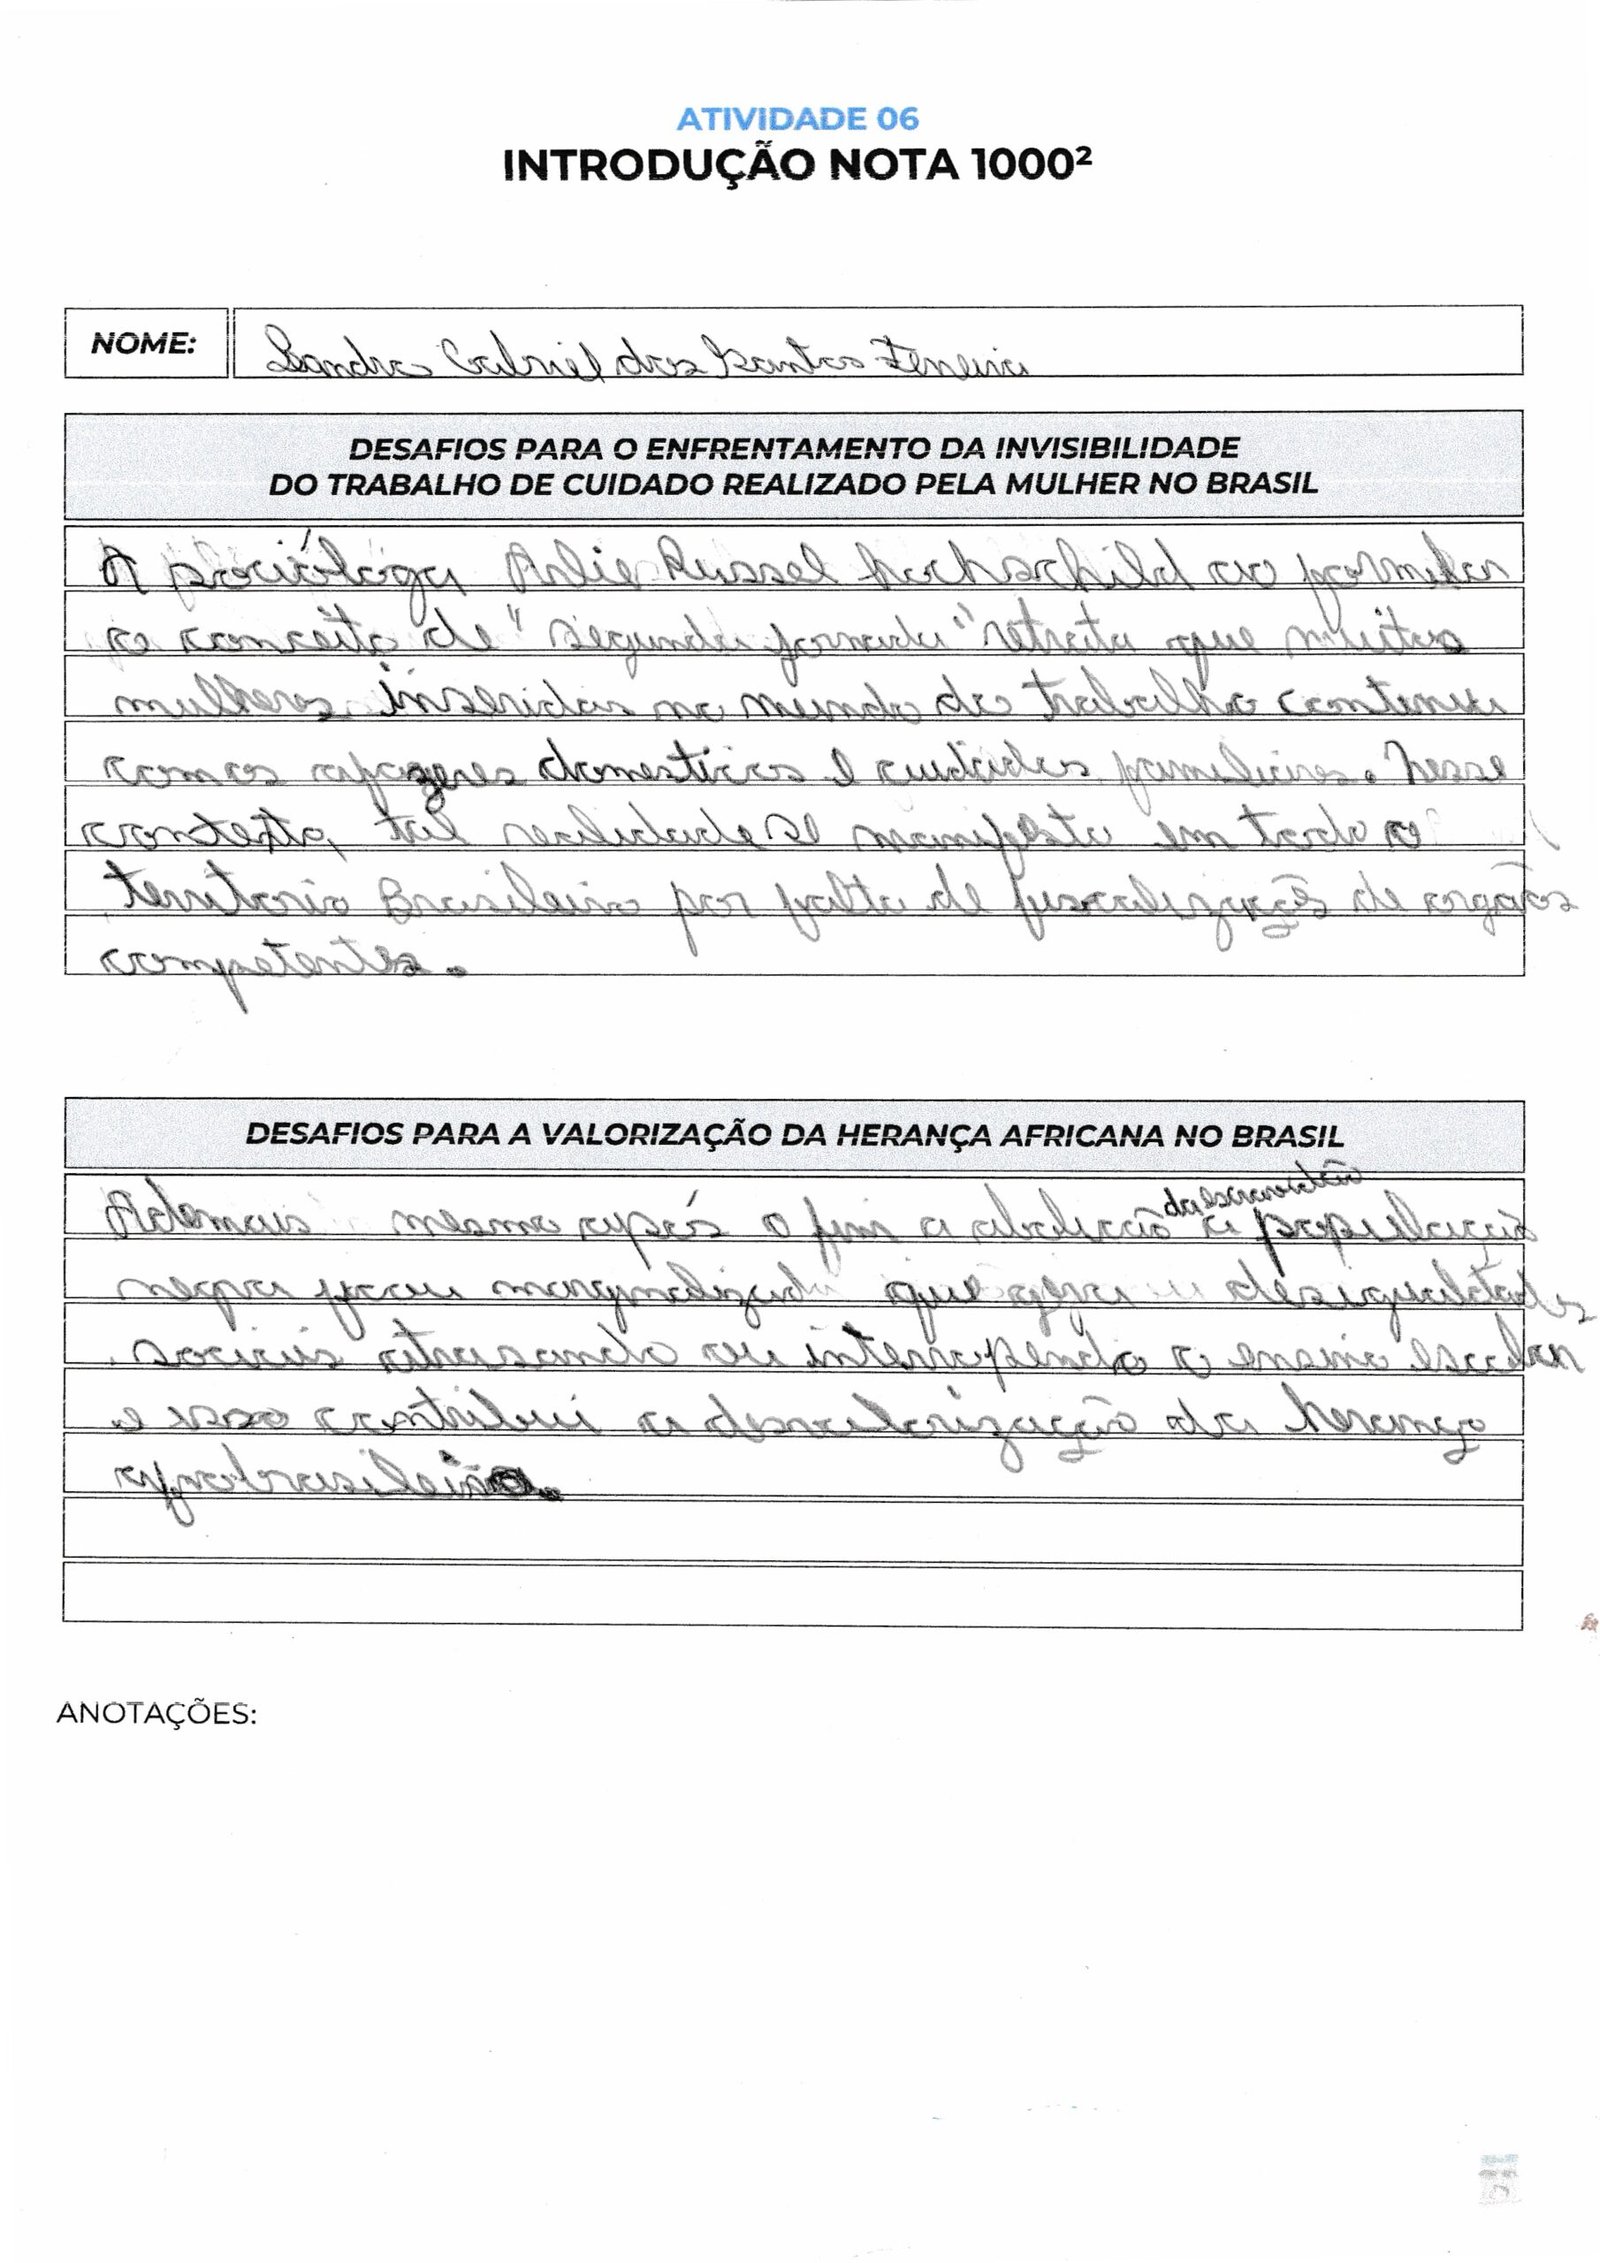 ATIVIDADE 06
INTRODUÇÃO NOTA 1000²
NOME: Sandro Gabriel dos Santos Ferreira
DESAFIOS PARA O ENFRENTAMENTO DA INVISIBILIDADE
DO TRABALHO DE CUIDADO REALIZADO PELA MULHER NO BRASIL
A socióloga Arlie Russel hochschild ao formular
o conceito de "segunda jornada" retrata que muitas
mulheres inseridas no mundo do trabalho continua
com os afazeres domesticos e cuidados familiares. Nesse
contexto, tal realidade se manifesta em todo o
territorio Brasileiro por falta de fiscalização de orgãos
competentes.
DESAFIOS PARA A VALORIZAÇÃO DA HERANÇA AFRICANA NO BRASIL
da escravidão
Ademais mesmo após o fim a abolicão a população
negra ficou marginalizada que gera desigualdades
sociais atrasando ou interropendo o ensino escolar
e isso contribui a desvalorização da herança
afrobrasileira.
ANOTAÇÕES: